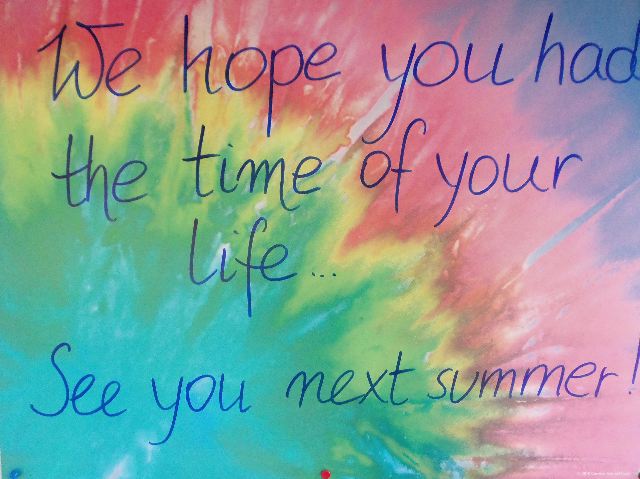 We hope you had
the time of your
life...
See you next summer!